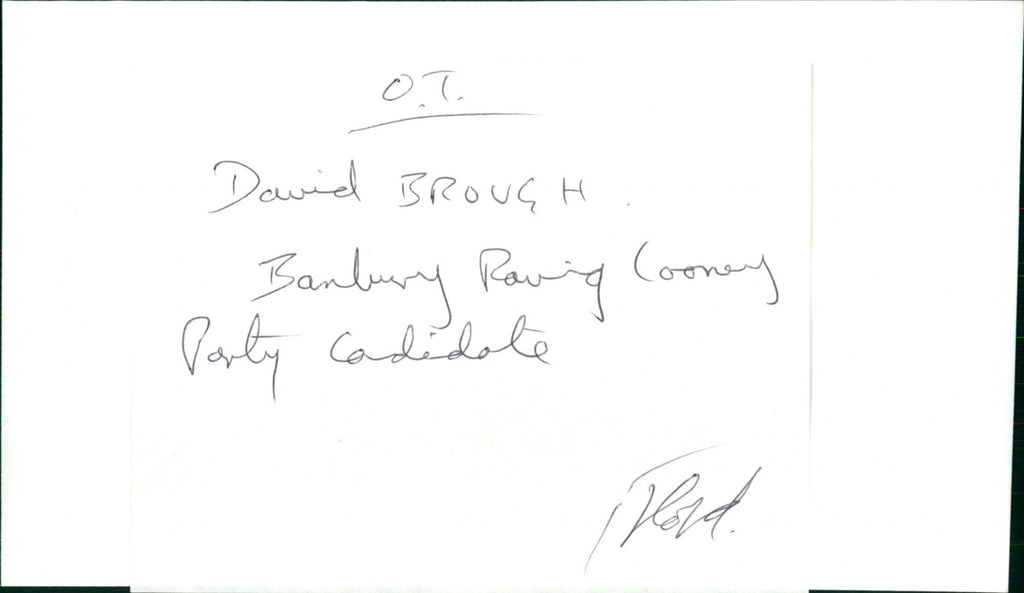 O.T.
David BROUGH.
Banbury Raving Looney
Party Cadidate
Floyd.